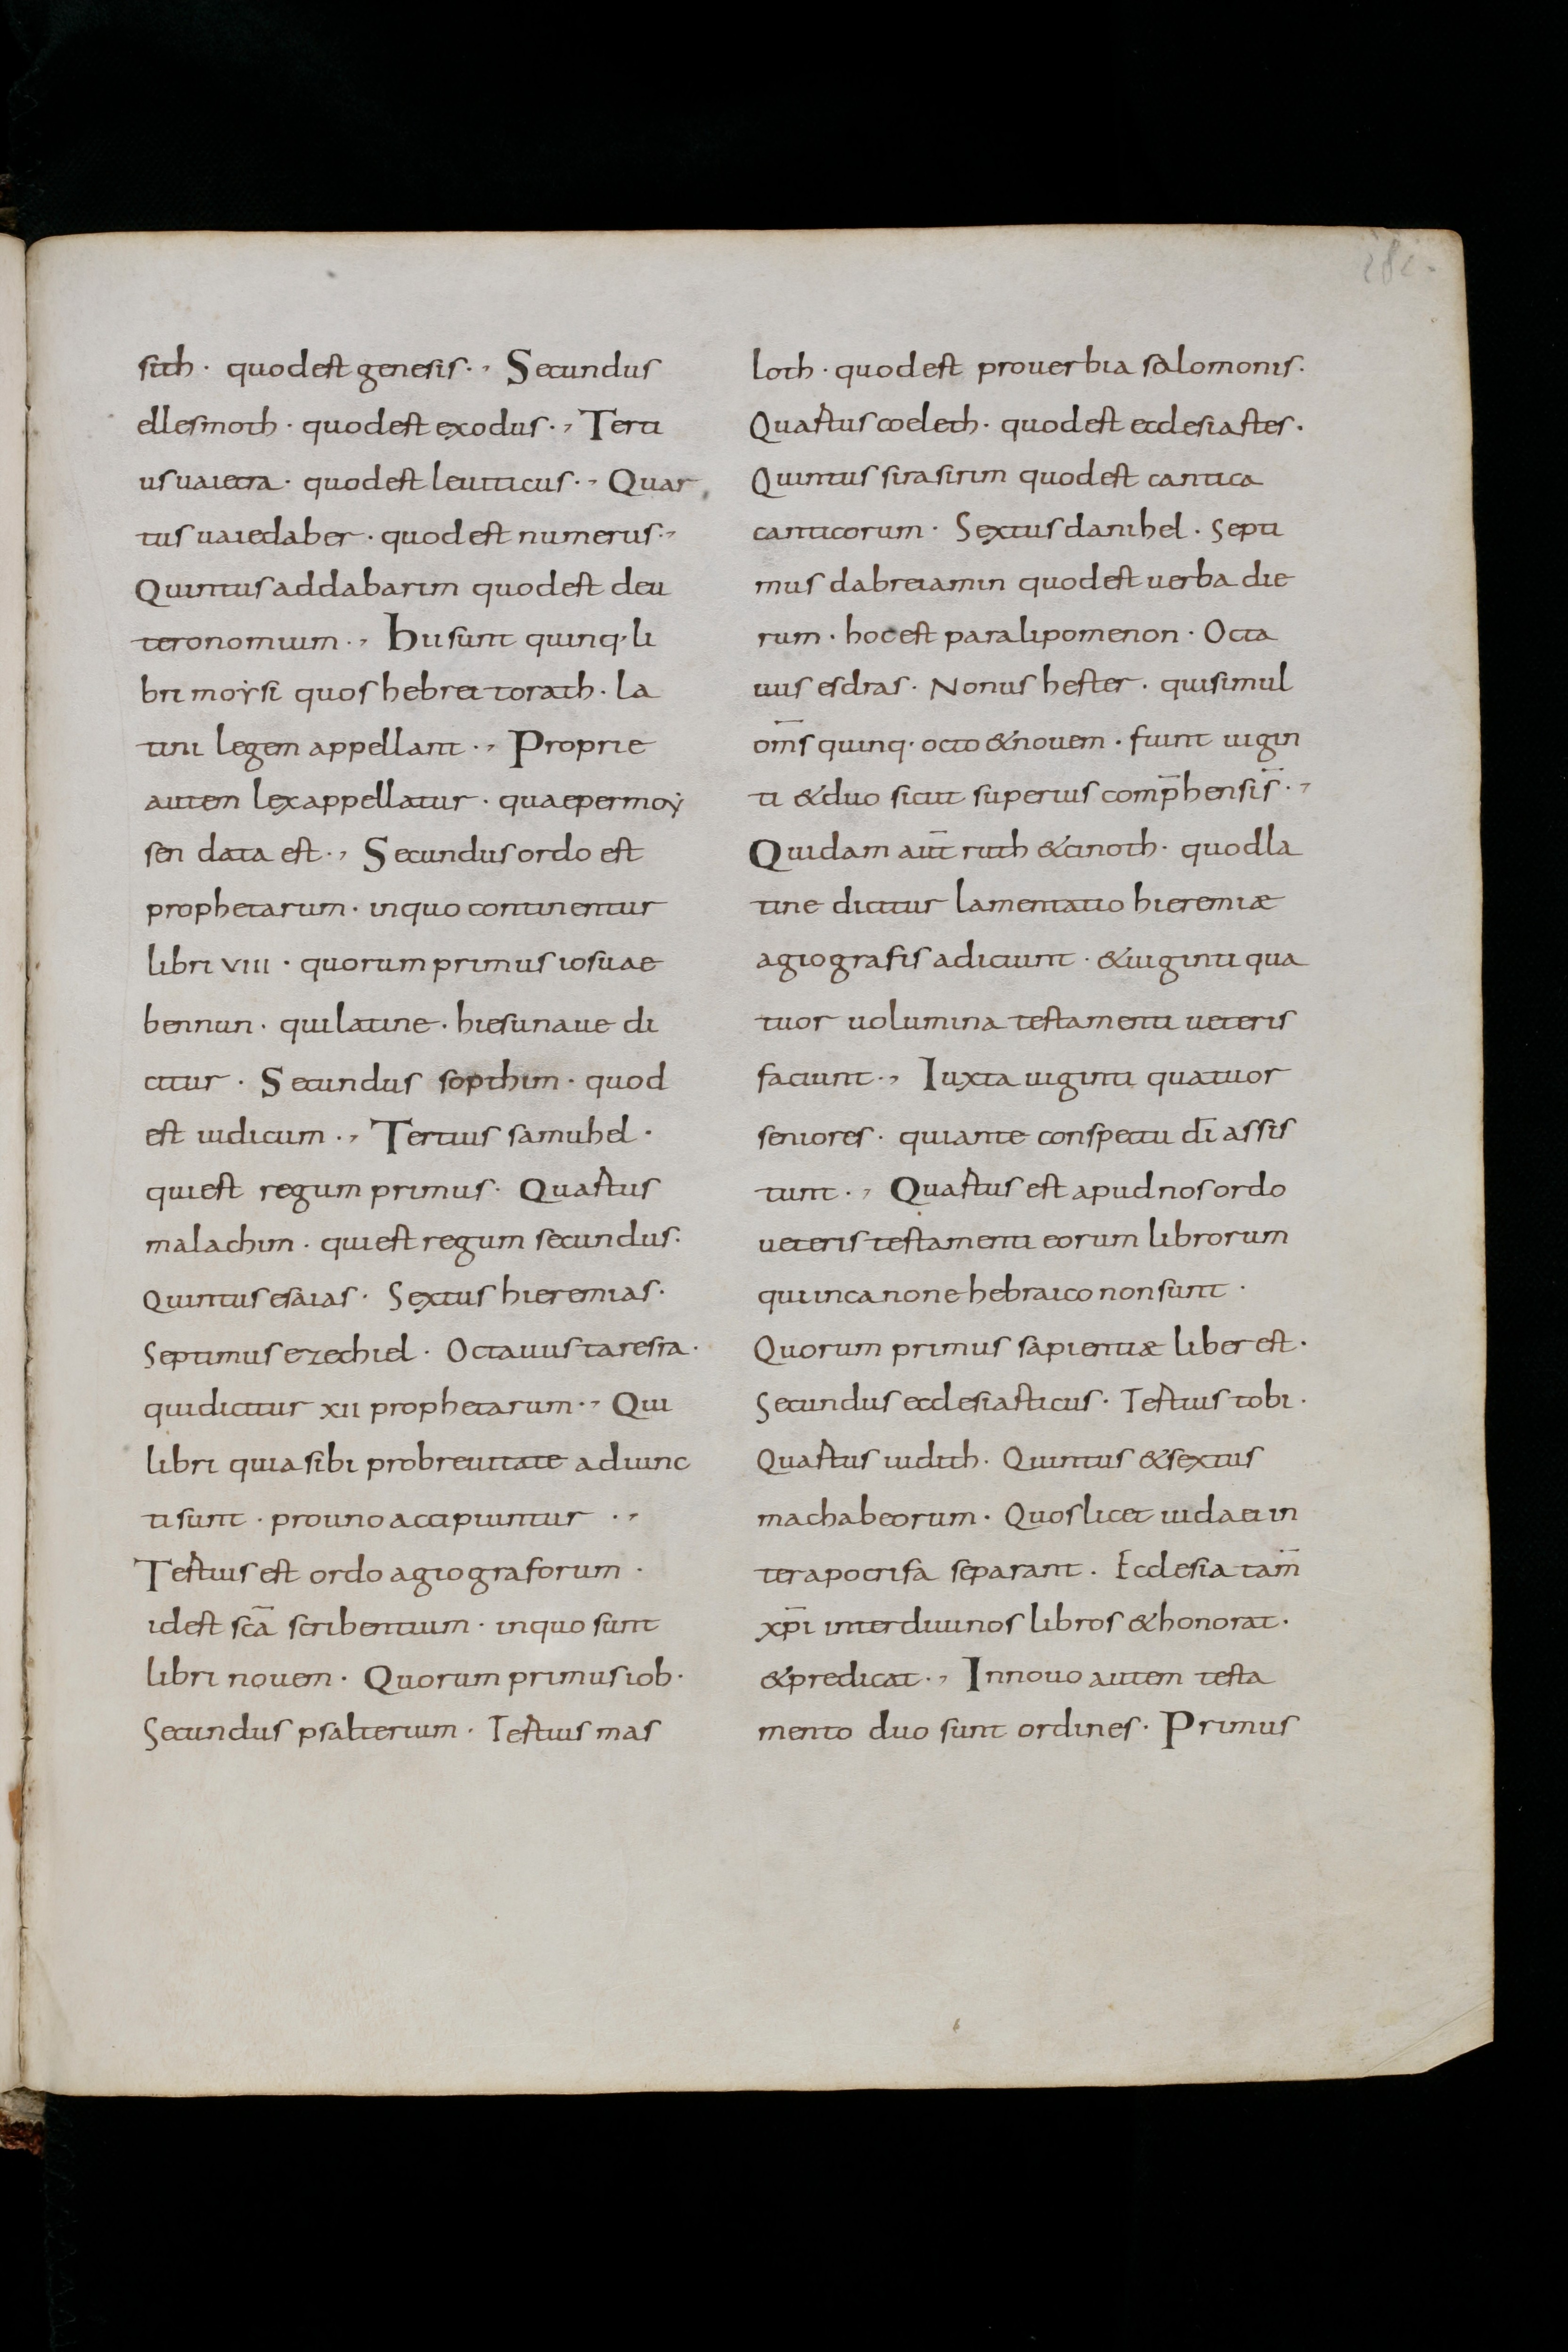 sith · quodest genesis ·, Secundus
ellesmoth · quodest exodus ·, Terti
us uaiecra · quodest leuiticus ·, Quar
tus uaiedaber · quodest numerus ·,
Quintus addabarim quodest deu
teronomium ·, Hii sunt quinq· li
bri moẏsi quos hebrei torath · la
tini legem appellant ·, Proprie
autem lex appellatur · quae per moẏ
sen data est ·, Secundus ordo est
prophetarum · inquo continentur
libri VIII · quorum primus iosuae
bennun · qui latine · hiesunaue di
citur · Secundus sopthim · quod
est iudicum ·, Tertius samuhel ·
qui est regum primus · Quartus
malachim · qui est regum secundus ·
Quintus esaias · Sextus hieremias ·
Septimus ezechiel · Octauus taresra ·
qui dicitur XII prophetarum ·, Qui
libri quia sibi pro breuitate adiunc
ti sunt · pro uno accipiuntur ·,
Tertius est ordo agiograforum ·
idest scā scribentium · inquo sunt
libri nouem · Quorum primus iob ·
Secundus psalterium · Tertius mas
loth · quodest prouerbia salomonis ·
Quartus coeleth · quodest ecclesiastes ·
Quintus sirasirim quodest cantica
canticorum · Sextus danihel · Septi
mus dabreiamin quodest uerba die
rum · hoc est paralipomenon · Octa
uus esdras · Nonus hester · qui simul
om̄s quinq· octo & nouem · fiunt uigin
ti & duo sicut superius comp̄hensis̄ ·,
Quidam aut̄ ruth & cinoth · quod la
tine dicitur lamentatio hieremiæ
agiografis adiciunt · & uiginti qua
tuor uolumina testamenti ueteris
faciunt ·, Iuxta uiginti quatuor
seniores · qui ante conspectu dī assis
tunt ·, Quartus est apud nos ordo
ueteris testamenti eorum librorum
qui in canone hebraico non sunt ·
Quorum primus sapientiæ liber est ·
Secundus ecclesiasticus · Tertius tobi ·
Quartus iudith · Quintus & sextus
machabeorum · Quos licet iudaei in
ter apocrifa separant · Ecclesia tam̄
xp̄i inter diuinos libros & honorat ·
& predicat ·, In nouo autem testa
mento duo sunt ordines · Primus